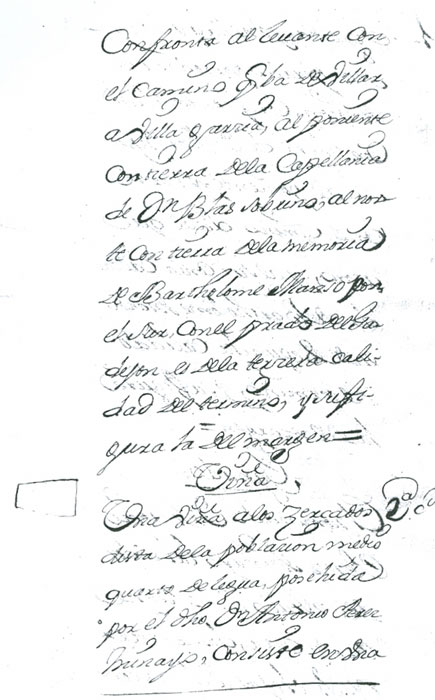 Confronta al levante con
el camino q.e ba de Villar
a Villa garcia, al poniente
con tierra de la Capellania
de Dn Blas sobrino, al nor
te con tierra de la memoria
de Barthólome Alonso por
el sur, con el prado del
dejon es de la terzera cali-
dad del termino, y su fi-
gura la = del margen =
Viña
Una Viña a los Zercados
dista de la poblacion medio
quarto de legua, posehida
por el dho, Dn Antonio Perez
consiste en Una
2a